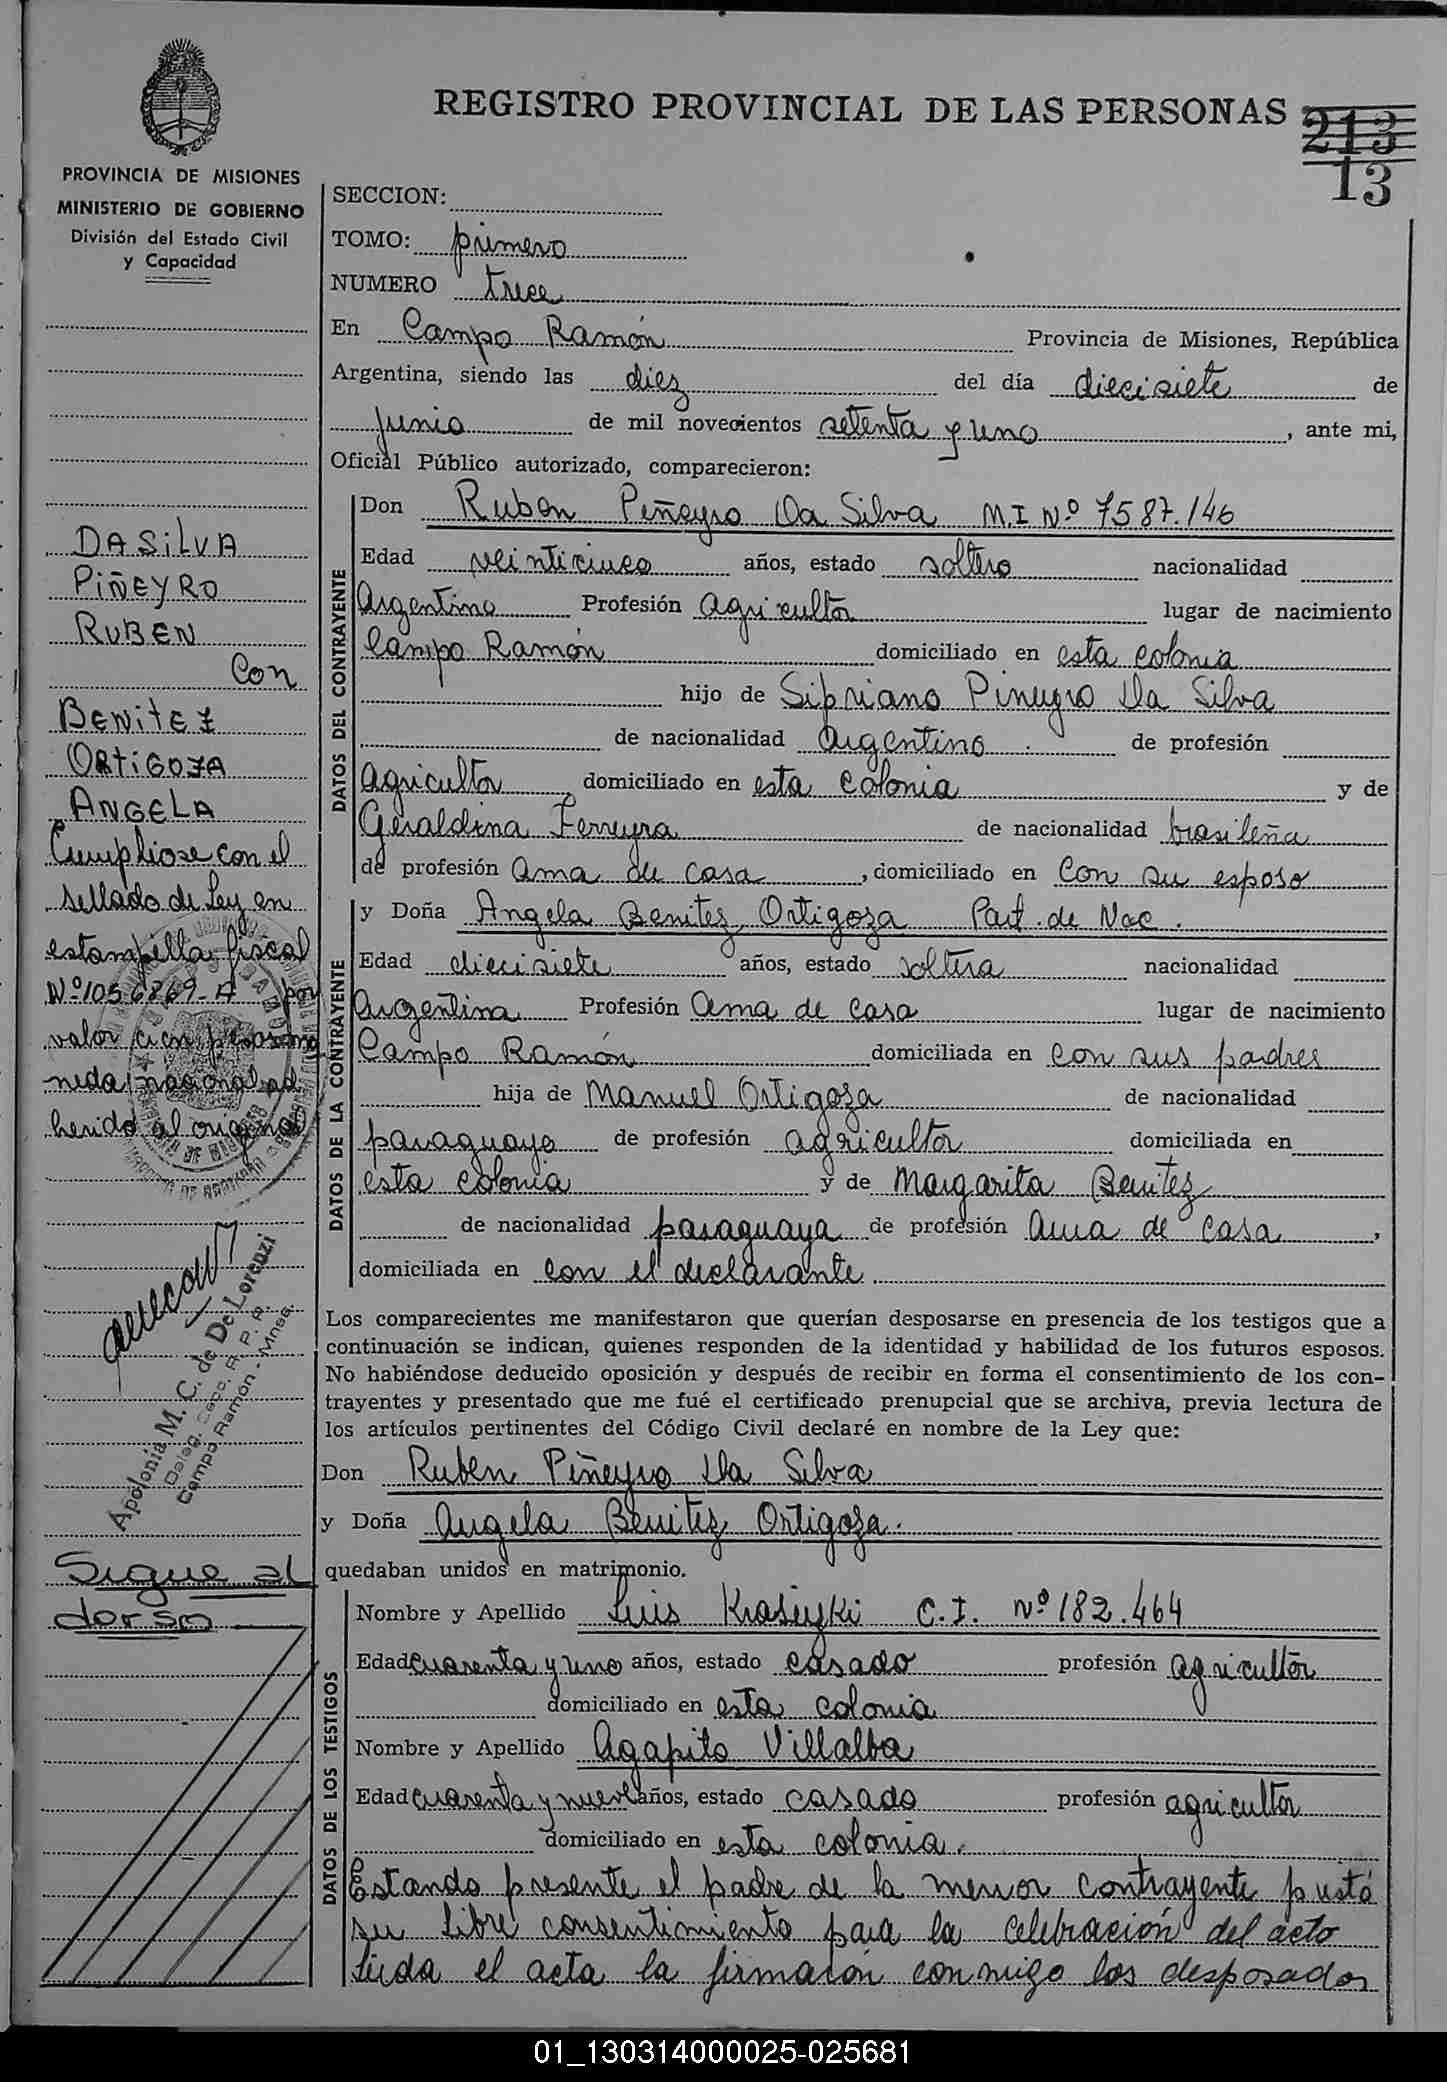 REGISTRO PROVINCIAL DE LAS PERSONAS
213
13
PROVINCIA DE MISIONES
MINISTERIO DE GOBIERNO
División del Estado Civil
y Capacidad
DA SILVA
PIÑEYRO
RUBEN
Con
BENITEZ
ORTIGOZA
ANGELA
Cumpliose con el
sellado de Ley en
estampilla fiscal
Nº 1056869-A por
valor cien pesos mo
neda nacional ad
herido al original
Apolonia M. C. de De Lorenzi
Deleg. Secc. R. P. P.
Campo Ramón - Mnes.
Sigue al
dorso
SECCION:
TOMO: primero
NUMERO trece
En Campo Ramón Provincia de Misiones, República
Argentina, siendo las diez del día diecisiete de
junio de mil novecientos setenta y uno, ante mi,
Oficial Público autorizado, comparecieron:
DATOS DEL CONTRAYENTE
Don Ruben Piñeyro Da Silva M.I Nº 7587.146
Edad veinticinco años, estado soltero nacionalidad
Argentino Profesión agricultor lugar de nacimiento
Campo Ramón domiciliado en esta colonia
hijo de Sipriano Pineyro Da Silva
de nacionalidad argentino de profesión
agricultor, domiciliado en esta colonia y de
Geraldina Ferreyra de nacionalidad brasileña
de profesión ama de casa, domiciliado en con su esposo
DATOS DE LA CONTRAYENTE
y Doña Angela Benitez Ortigoza Part. de Nac.
Edad diecisiete años, estado soltera nacionalidad
Argentina Profesión ama de casa lugar de nacimiento
Campo Ramón domiciliada en con sus padres
hija de Manuel Ortigoza de nacionalidad
paraguayo de profesión agricultor domiciliada en
esta colonia y de Margarita Benitez
de nacionalidad paraguaya de profesión ama de casa,
domiciliada en con el declarante
Los comparecientes me manifestaron que querían desposarse en presencia de los testigos que a
continuación se indican, quienes responden de la identidad y habilidad de los futuros esposos.
No habiéndose deducido oposición y después de recibir en forma el consentimiento de los con-
trayentes y presentado que me fué el certificado prenupcial que se archiva, previa lectura de
los artículos pertinentes del Código Civil declaré en nombre de la Ley que:
Don Ruben Piñeyro Da Silva
y Doña Angela Benitez Ortigoza.
quedaban unidos en matrimonio.
DATOS DE LOS TESTIGOS
Nombre y Apellido Luis C.I. Nº 182.464
Edad cuarenta y uno años, estado casado profesión agricultor
domiciliado en esta colonia
Nombre y Apellido Agapito Villalba
Edad cuarenta y nueve años, estado casado profesión agricultor
domiciliado en esta colonia.
Estando presente el padre de la menor contrayente
su libre consentimiento para la celebración del acto
Leida el acta la firmaron conmigo los desposados
01_130314000025-025681